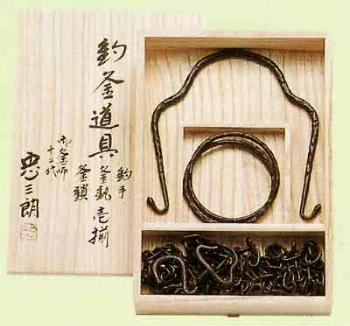 釣釜道具
釣手
釜釻
釜鎖
壱揃
御釜師
十二代
忠三朗